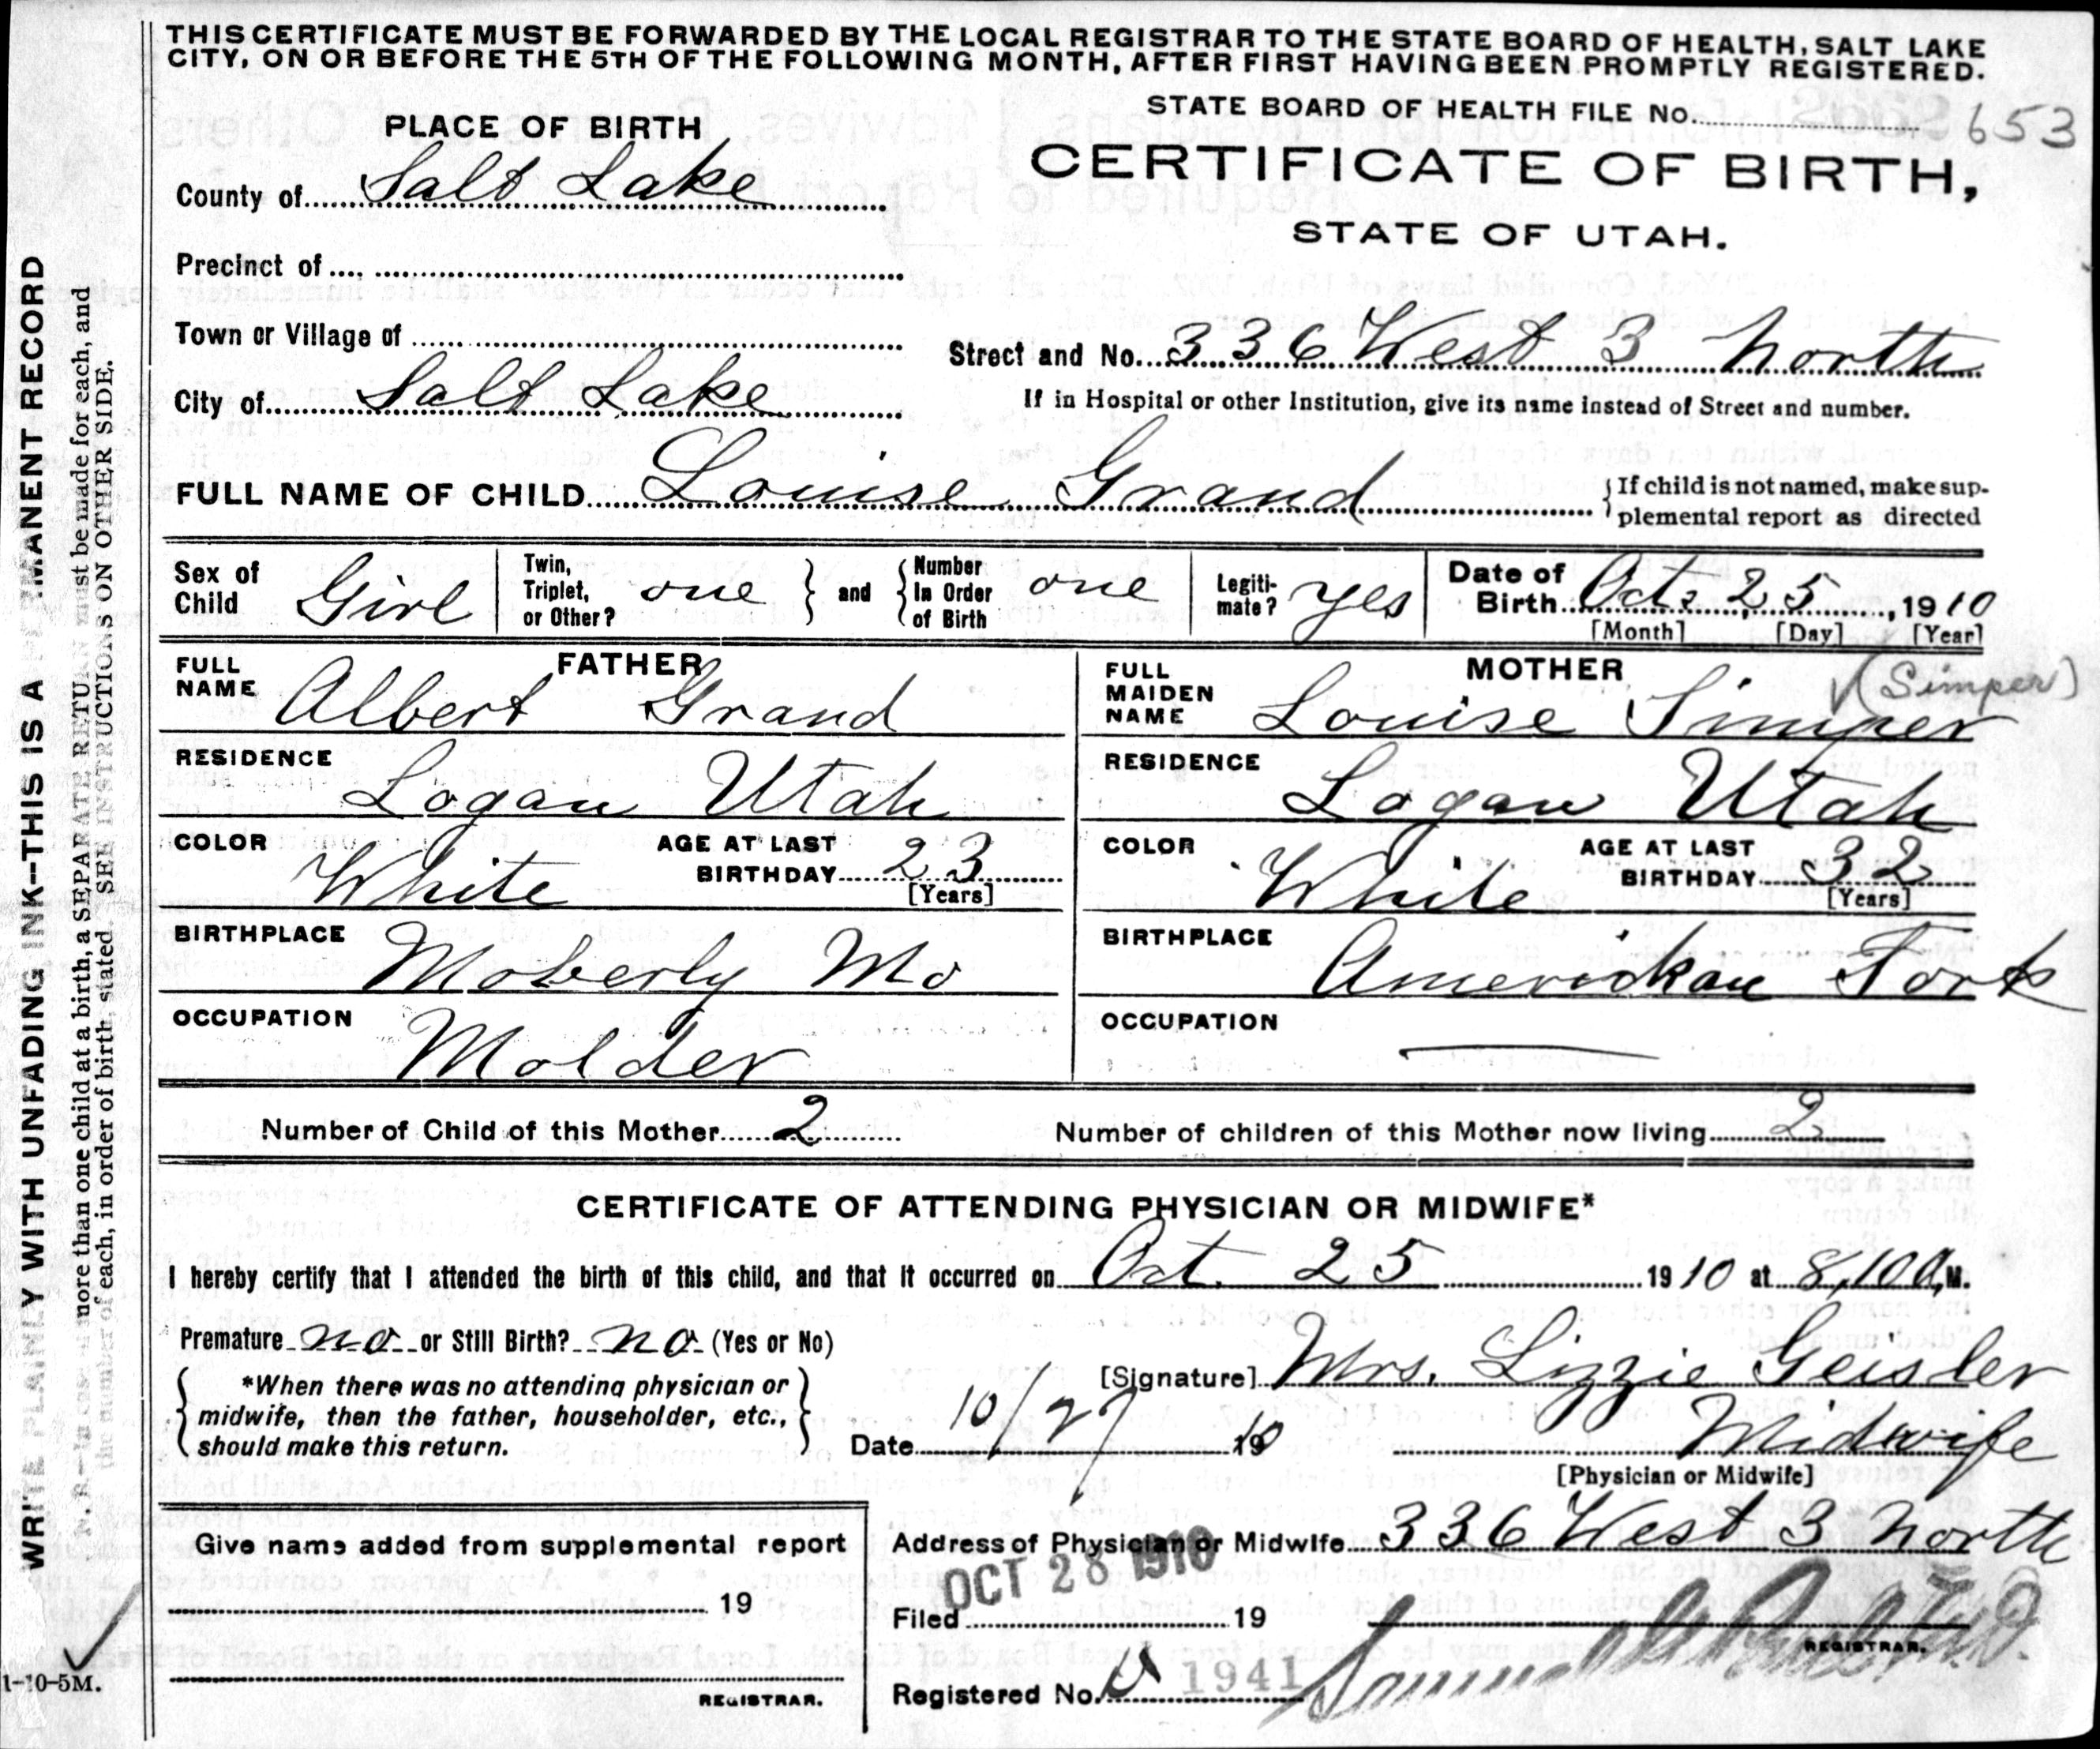 THIS CERTIFICATE MUST BE FORWARDED BY THE LOCAL REGISTRAR TO THE STATE BOARD OF HEALTH, SALT LAKE
CITY, ON OR BEFORE THE 5TH OF THE FOLLOWING MONTH, AFTER FIRST HAVING BEEN PROMPTLY REGISTERED.
STATE BOARD OF HEALTH FILE No. 653
PLACE OF BIRTH
CERTIFICATE OF BIRTH,
STATE OF UTAH.
County of Salt Lake
Precinct of
Town or Village of
Street and No. 336 West 3 North
City of Salt Lake
If in Hospital or other Institution, give its name instead of Street and number.
FULL NAME OF CHILD Louise Grand
If child is not named, make sup-
plemental report as directed
Sex of Child Girl
Twin, Triplet, or Other? one and Number In Order of Birth one
Legiti-mate? yes
Date of Birth Oct. 25, 1910
[Month] [Day] [Year]
FATHER
FULL NAME Albert Grand
RESIDENCE Logan Utah
COLOR White AGE AT LAST BIRTHDAY 23 [Years]
BIRTHPLACE Moberly Mo
OCCUPATION Molder
MOTHER
FULL MAIDEN NAME Louise Simper (Simper)
RESIDENCE Logan Utah
COLOR White AGE AT LAST BIRTHDAY 32 [Years]
BIRTHPLACE Americkan Fork
OCCUPATION
Number of Child of this Mother 2 Number of children of this Mother now living 2
CERTIFICATE OF ATTENDING PHYSICIAN OR MIDWIFE*
I hereby certify that I attended the birth of this child, and that it occurred on Oct. 25 1910 at 8,10 a, M.
Premature no or Still Birth? no (Yes or No)
[Signature] Mrs. Lizzie Geisler
*When there was no attending physician or
midwife, then the father, householder, etc.,
should make this return.
Date 10/27 1910 Midwife
[Physician or Midwife]
Give name added from supplemental report
19
REGISTRAR.
Address of Physician or Midwife 336 West 3 North
OCT 28 1910
Filed 19
REGISTRAR.
Registered No. 1941
WRITE PLAINLY WITH UNFADING INK—THIS IS A MANENT RECORD
more than one child at a birth, a SEPARATE RETURN must be made for each, and
the number of each, in order of birth, stated. SEE INSTRUCTIONS ON OTHER SIDE.
1-10-5M.